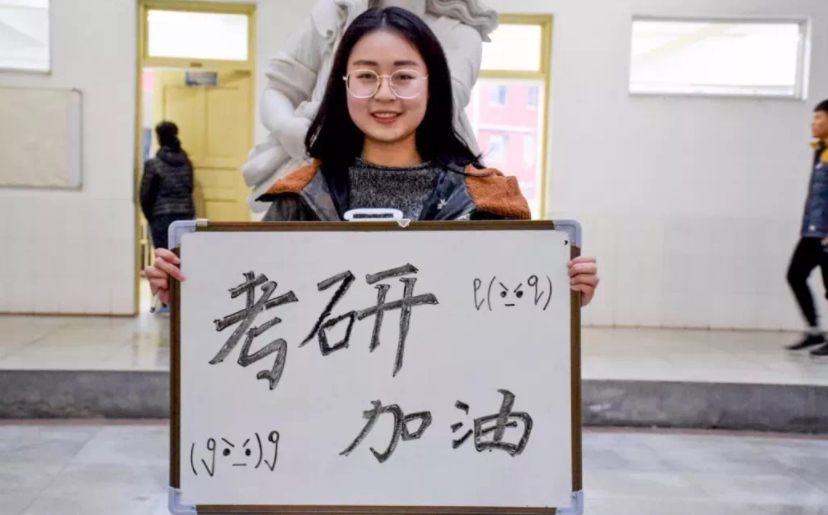 考研
ლ(•̀_•́ლ)
加油
(ง •̀_•́)ง